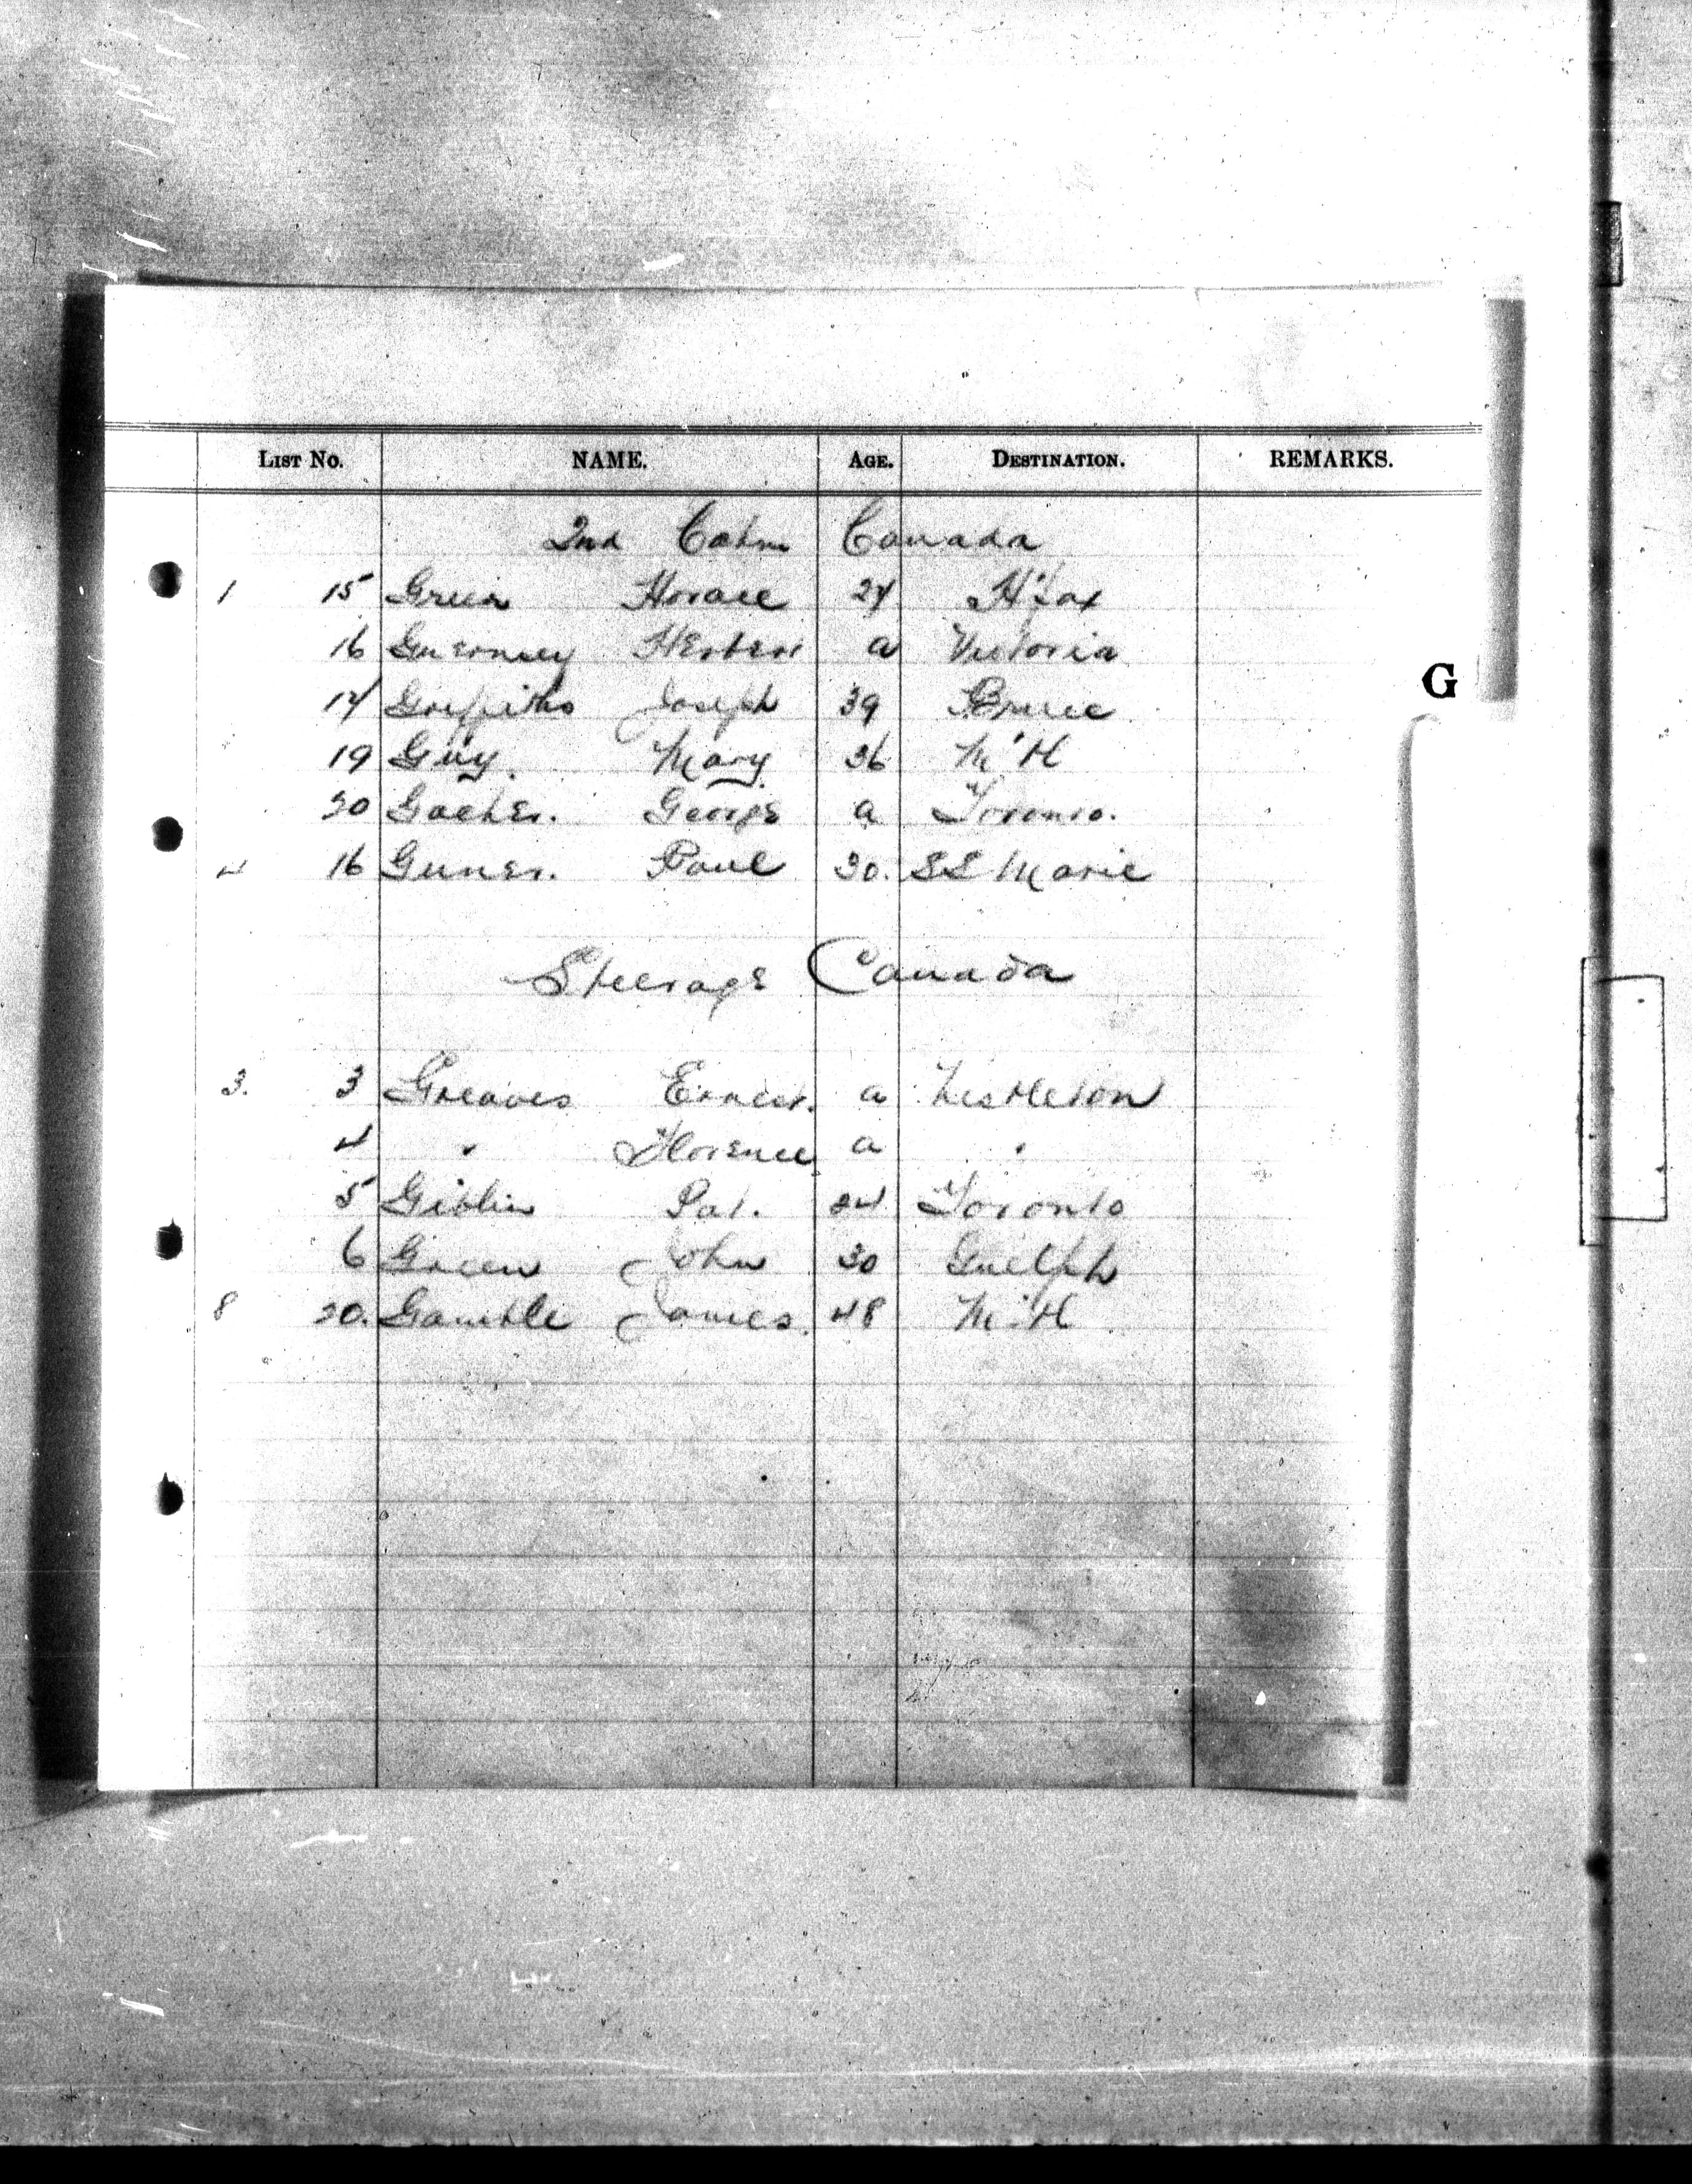 LIST NO. NAME. AGE. DESTINATION. REMARKS.
2nd Cabin Canada
1 15 Green Horace 27 H'fax
16 Guernsey Herbert a Victoria
17 Griffiths Joseph 39 Bruce
19 Guy. Mary 36 M'H
G
20 George a Toronto.
4 16 Guner. Paul 30. SS Marie
Steerage Canada
3. 3 Greaves Ernest. a
4 " Florence a "
5 Giblin Pat. 24 Toronto
6 Green John 30 Guelph
8 20. Gamble James. 48 M'H